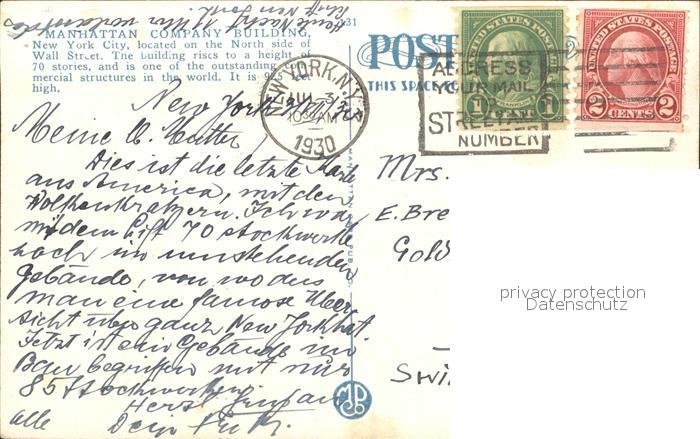 Heute Nacht 11 Uhr verlassen
New York.
MANHATTAN COMPANY BUILDING,
New York City, located on the North side of
Wall Street. The building rises to a height
70 stories, and is one of the outstanding com
mercial structures in the world. It is 925 feet
high.
131
POST
THIS SPACE
NEW YORK, N.Y.
AUG 3
10 30 AM
1930
ADDRESS
YOUR MAIL
TO
STREET AND
NUMBER
UNITED STATES POSTAGE
FRANKLIN
1 1
UNITED STATES POSTAGE
2 CENTS 2
New York
Meine l. Mutter,
Dies ist die letzte Karte
aus America, mit den
Wolkenkratzern. Ich war
mit dem Lift 70 Stockwerke
hoch im umstehenden
Gebäude, von wo aus
man eine famose Über
sicht über ganz New York hat.
Jetzt ist ein Gebäude im
Bau begriffen mit
85 Stockwerken.
Herzl.
alle Dein
Mrs.
E. Bre
Gold
Swi
privacy protection
Datenschutz